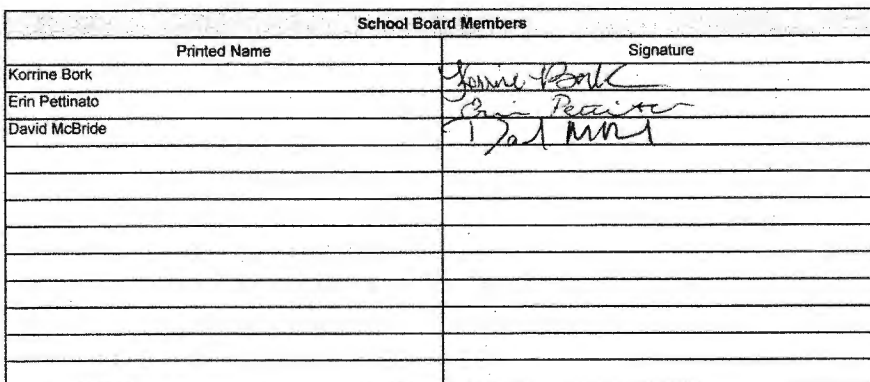 School Board Members
Printed Name Signature
Korrine Bork Korrine Bork
Erin Pettinato Erin
David McBride